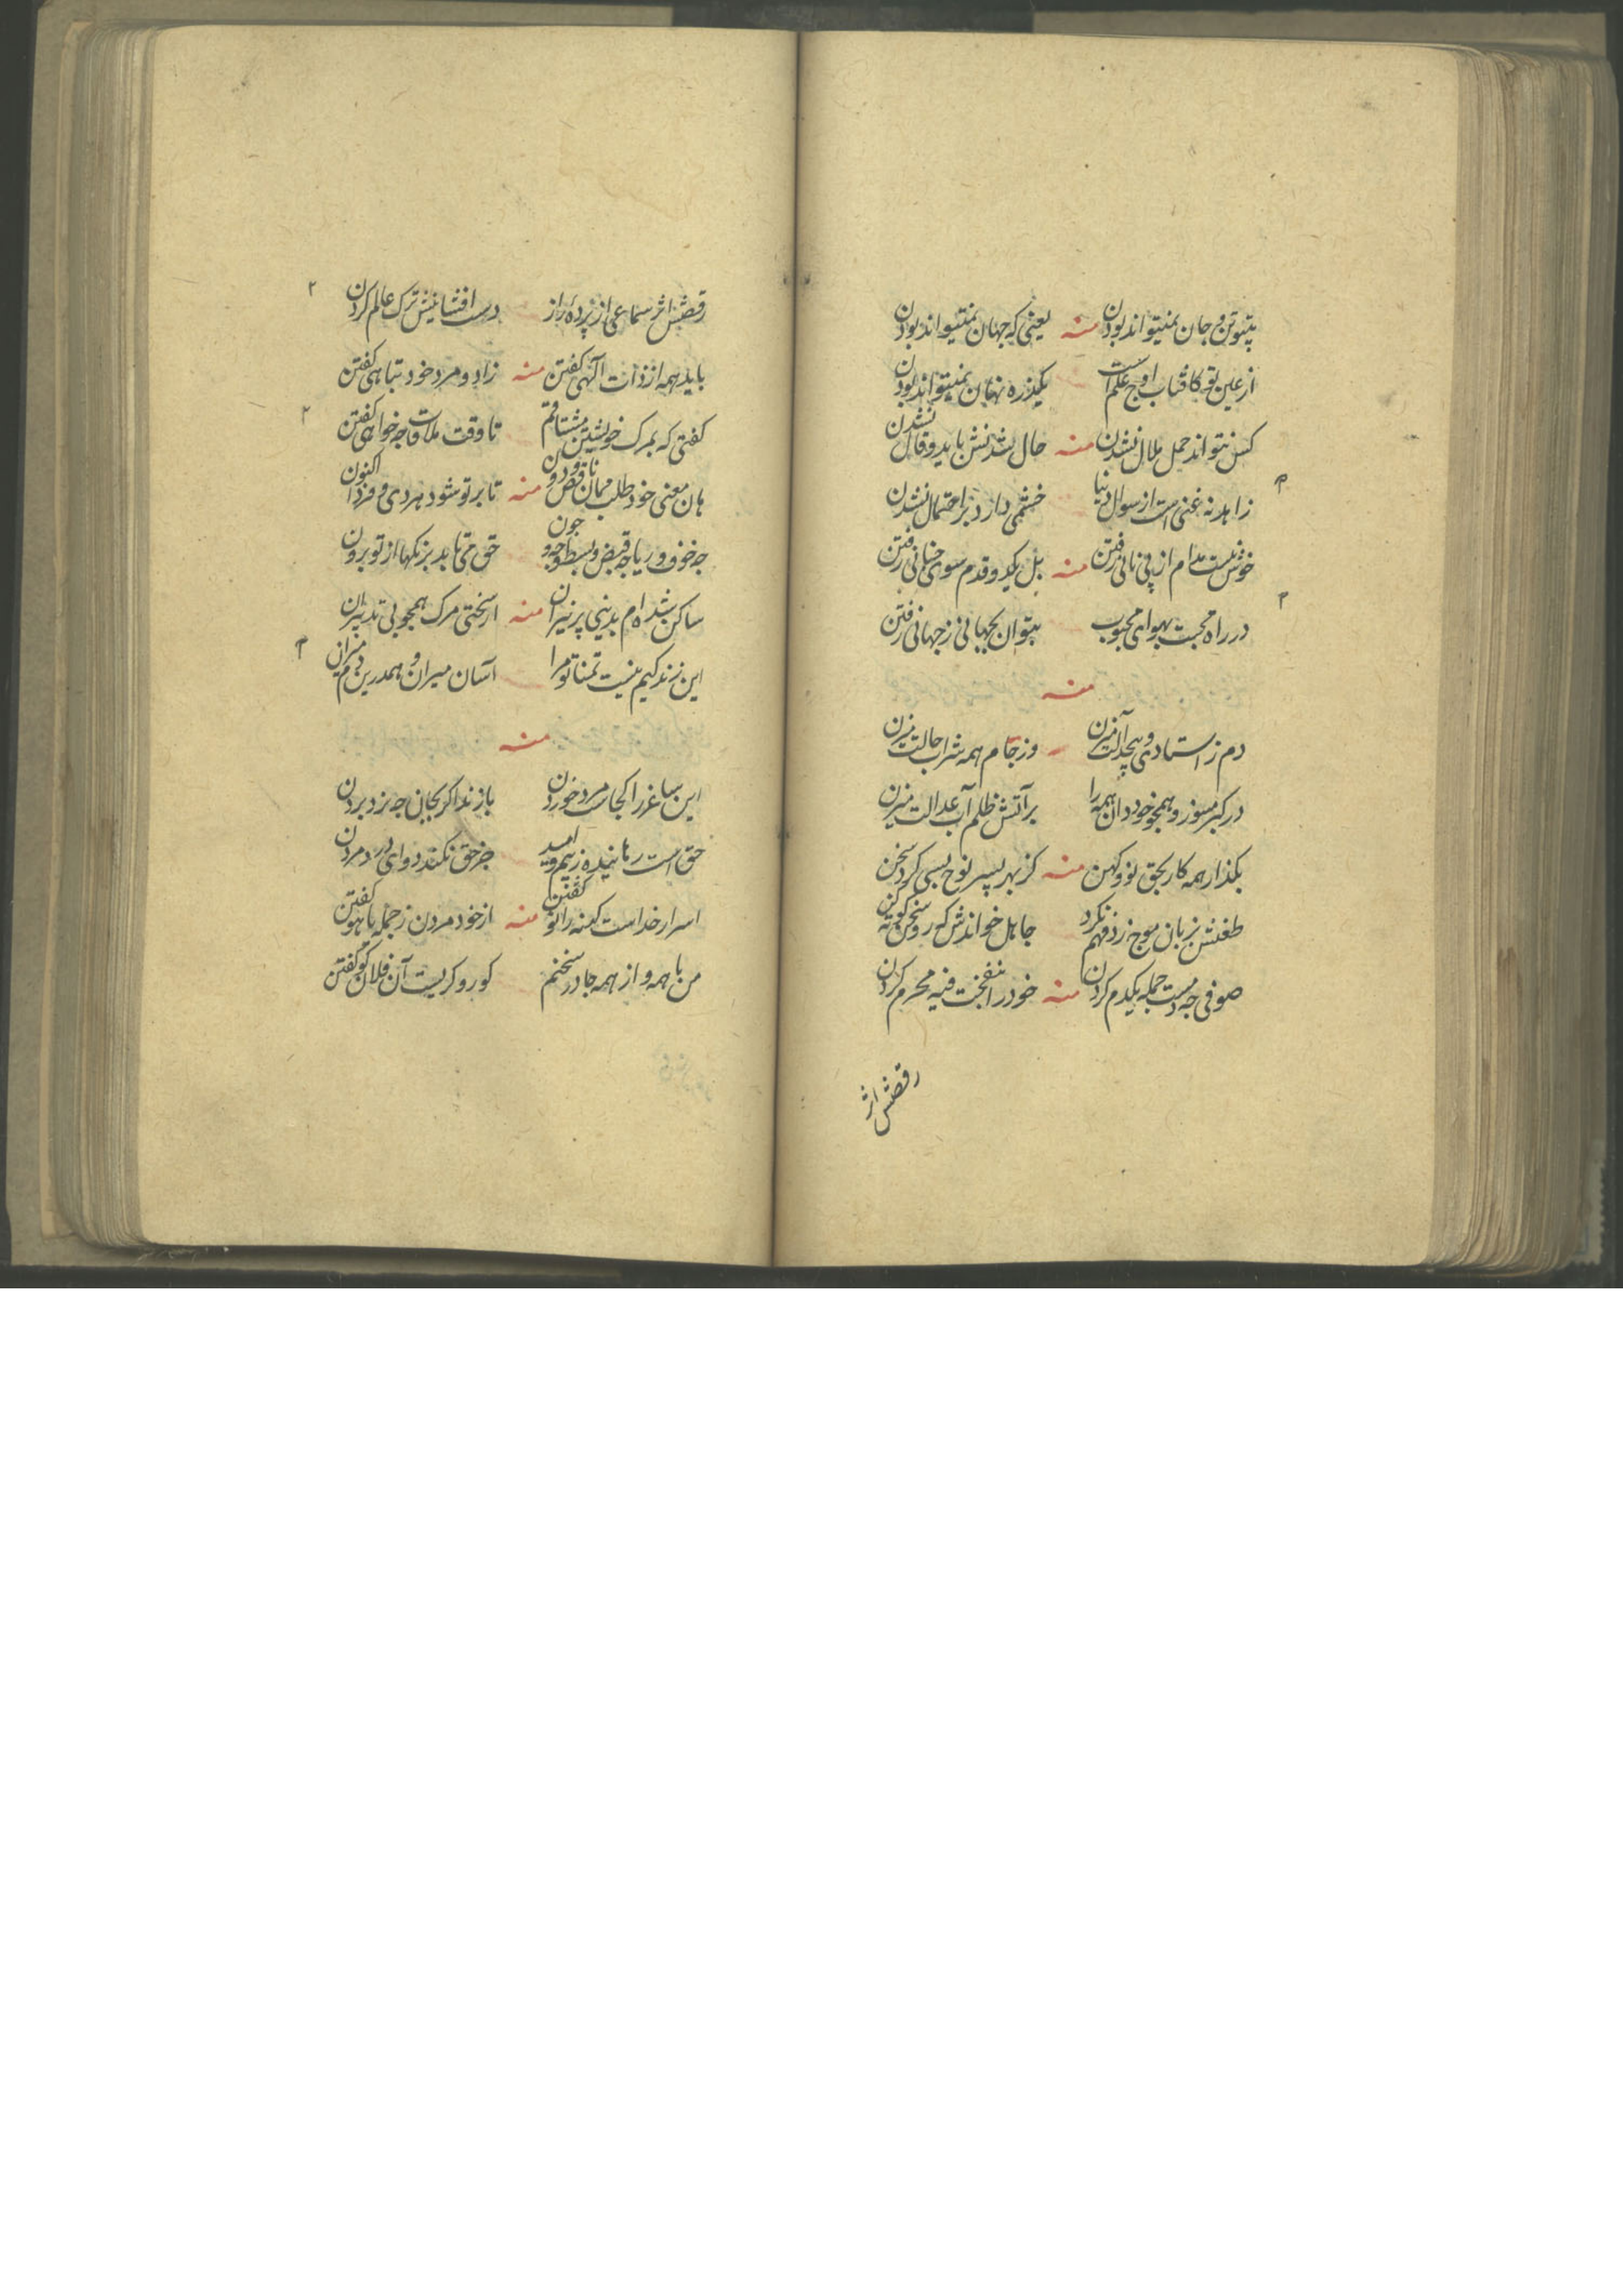 بیتو تن و جان نمیتواند بودن منه یعنی که جهان نمیتواند بودن
از عین تو کافتاب اوج علم است یکذره نهان نمیتواند بودن
کس نتواند حمل ملال نشدن منه حال شدنش باید و قال نشدن
زاهد نه غنی است از سوال دنیا خشمی دارد بر احتمال نشدن
خوش نیست مدام از پی نانی رفتن منه بل یکدو قدم سوی جنانی رفتن
در راه محبت بهوای محبوب بتوان بجهانی ز جهانی رفتن
منه
دم ز استادی و بیجدالت میزن وز جام همه شراب حالت میزن
در کبر مسوز و همجو خود دان همه را بر آتش ظلم آب عدالت میزن
بکذار همه کار بحق نو و کهن منه کز بهر پسر نوح بسی کرد سخن
طعنش بزبان موج زد فهم نکرد جاهل خواندش که رو سخن کوته کن
صوفی جه دمست جمله یکدم کردن منه خود را بنفخت فیه محرم کردن
رقصش اثر
رقصش اثر سماعی از پرده راز دست افشانیش ترک عالم کردن
باید همه از ذات آلهی کفتن منه زاد و مرد خود تباهی کفتن
کفتی که بمرک خویشتن مشتاقم تا وقت ملاقات جه خواهی کفتن
هان معنی خود طلب ممان ناقص و دون منه تا بر تو شود هر دی و فردا اکنون
جه خوف و رجا جه قبض و بسط و جه و جون حق می تابد بزنکها از تو برون
ساکن شده ام بدینی پر نیران منه از سختی مرک همجو بی تدبیران
این زندکیم نیست تمنا تو مرا آسان میران و همدرین دم میران
منه
این ساغر را کجاست مرد خوردن بازنده اکر بجان جه نرد بردن
حق است رهاننده ز بیم و امید جز حق نکند دوای درد مردن
اسرار خداست کهنه را نو کفتن منه از خود مردن ز جمله با هو کفتن
من با همه و از همه جا در سخنم کور و کریست آن فلان کو کفتن